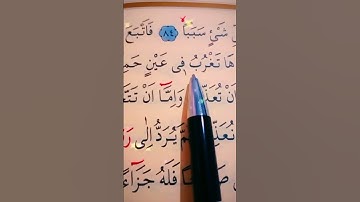 شَىْءٍ سَبَباً ﴿٨٤﴾ فَاَتْبَعَ
هَا تَغْرُبُ فٖى عَيْنٍ حَمِ
نْ تُعَذِّ وَاِمَّٓا اَنْ تَتَّ
نُعَذِّ مَّ يُرَدُّ اِلٰى رَ
فَلَهُ جَزَٓاءً